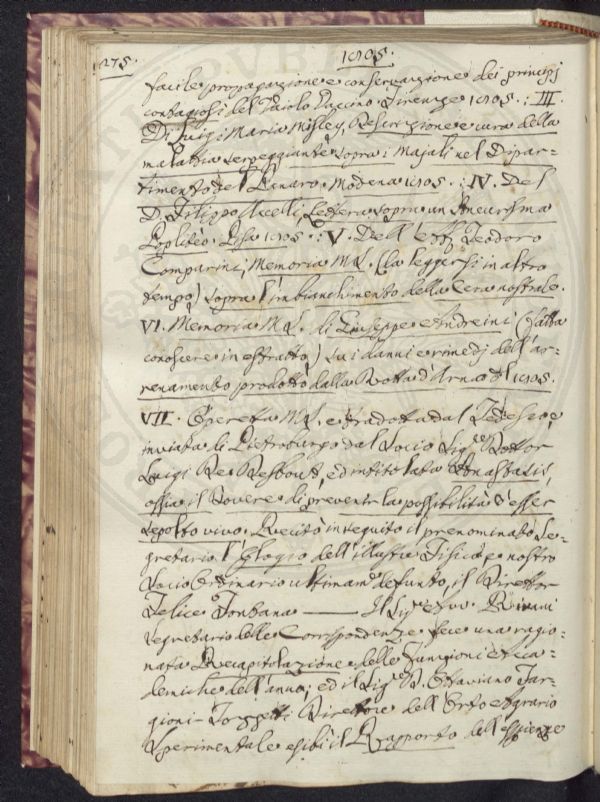 275.
1805.
facile propagazione e conservazione dei principj
contagiosi del Paiolo Paccino Firenze 1805. : III.
Di Luigi Maria Misley, Descrizione e cura della
malattia serpeggiante sopra i Majali nel Dipar=
timento del Panaro. Modena 1805. : IV. Del
D. Filippo Uccelli, Lettera sopra un Aneurisma
Popliteo. Pisa 1805. : V. Dell' Teodoro
Comparini, Memoria MS. (da leggersi in altro
tempo) sopra l'imbianchimento della Cera nostrale.
VI. Memoria MS. di Giuseppe Andreini (fatta
conoscere in estratto) su i danni e rimedj dell' ar=
renamento prodotto dalla Rotta d'Arno del 1805.
VII. Operetta MS. tradotta dal Tedesco, e
inviata di Pietroburgo dal Socio Sig.re Dottor
Luigi De, ed intitolata Anastasis,
ossia il Dovere di prevenir la possibilità d'esser
sepolto vivo. Recitò in seguito il prenominato Se=
gretario l'Elogio dell'illustre Fisico, e nostro
Socio Ordinario ultimam.e defunto, il Direttor
Felice Fontana ——— Il Sig.re Avv. Rivani
Segretario delle Corrispondenze fece una ragio=
nata Recapitolazione delle Funzioni Acca=
demiche dell'anno; ed il Sig.re D. Ottaviano Tar=
gioni-Tozzetti Direttore dell'Orto Agrario
Sperimentale esibì il Rapporto dell'esperienze